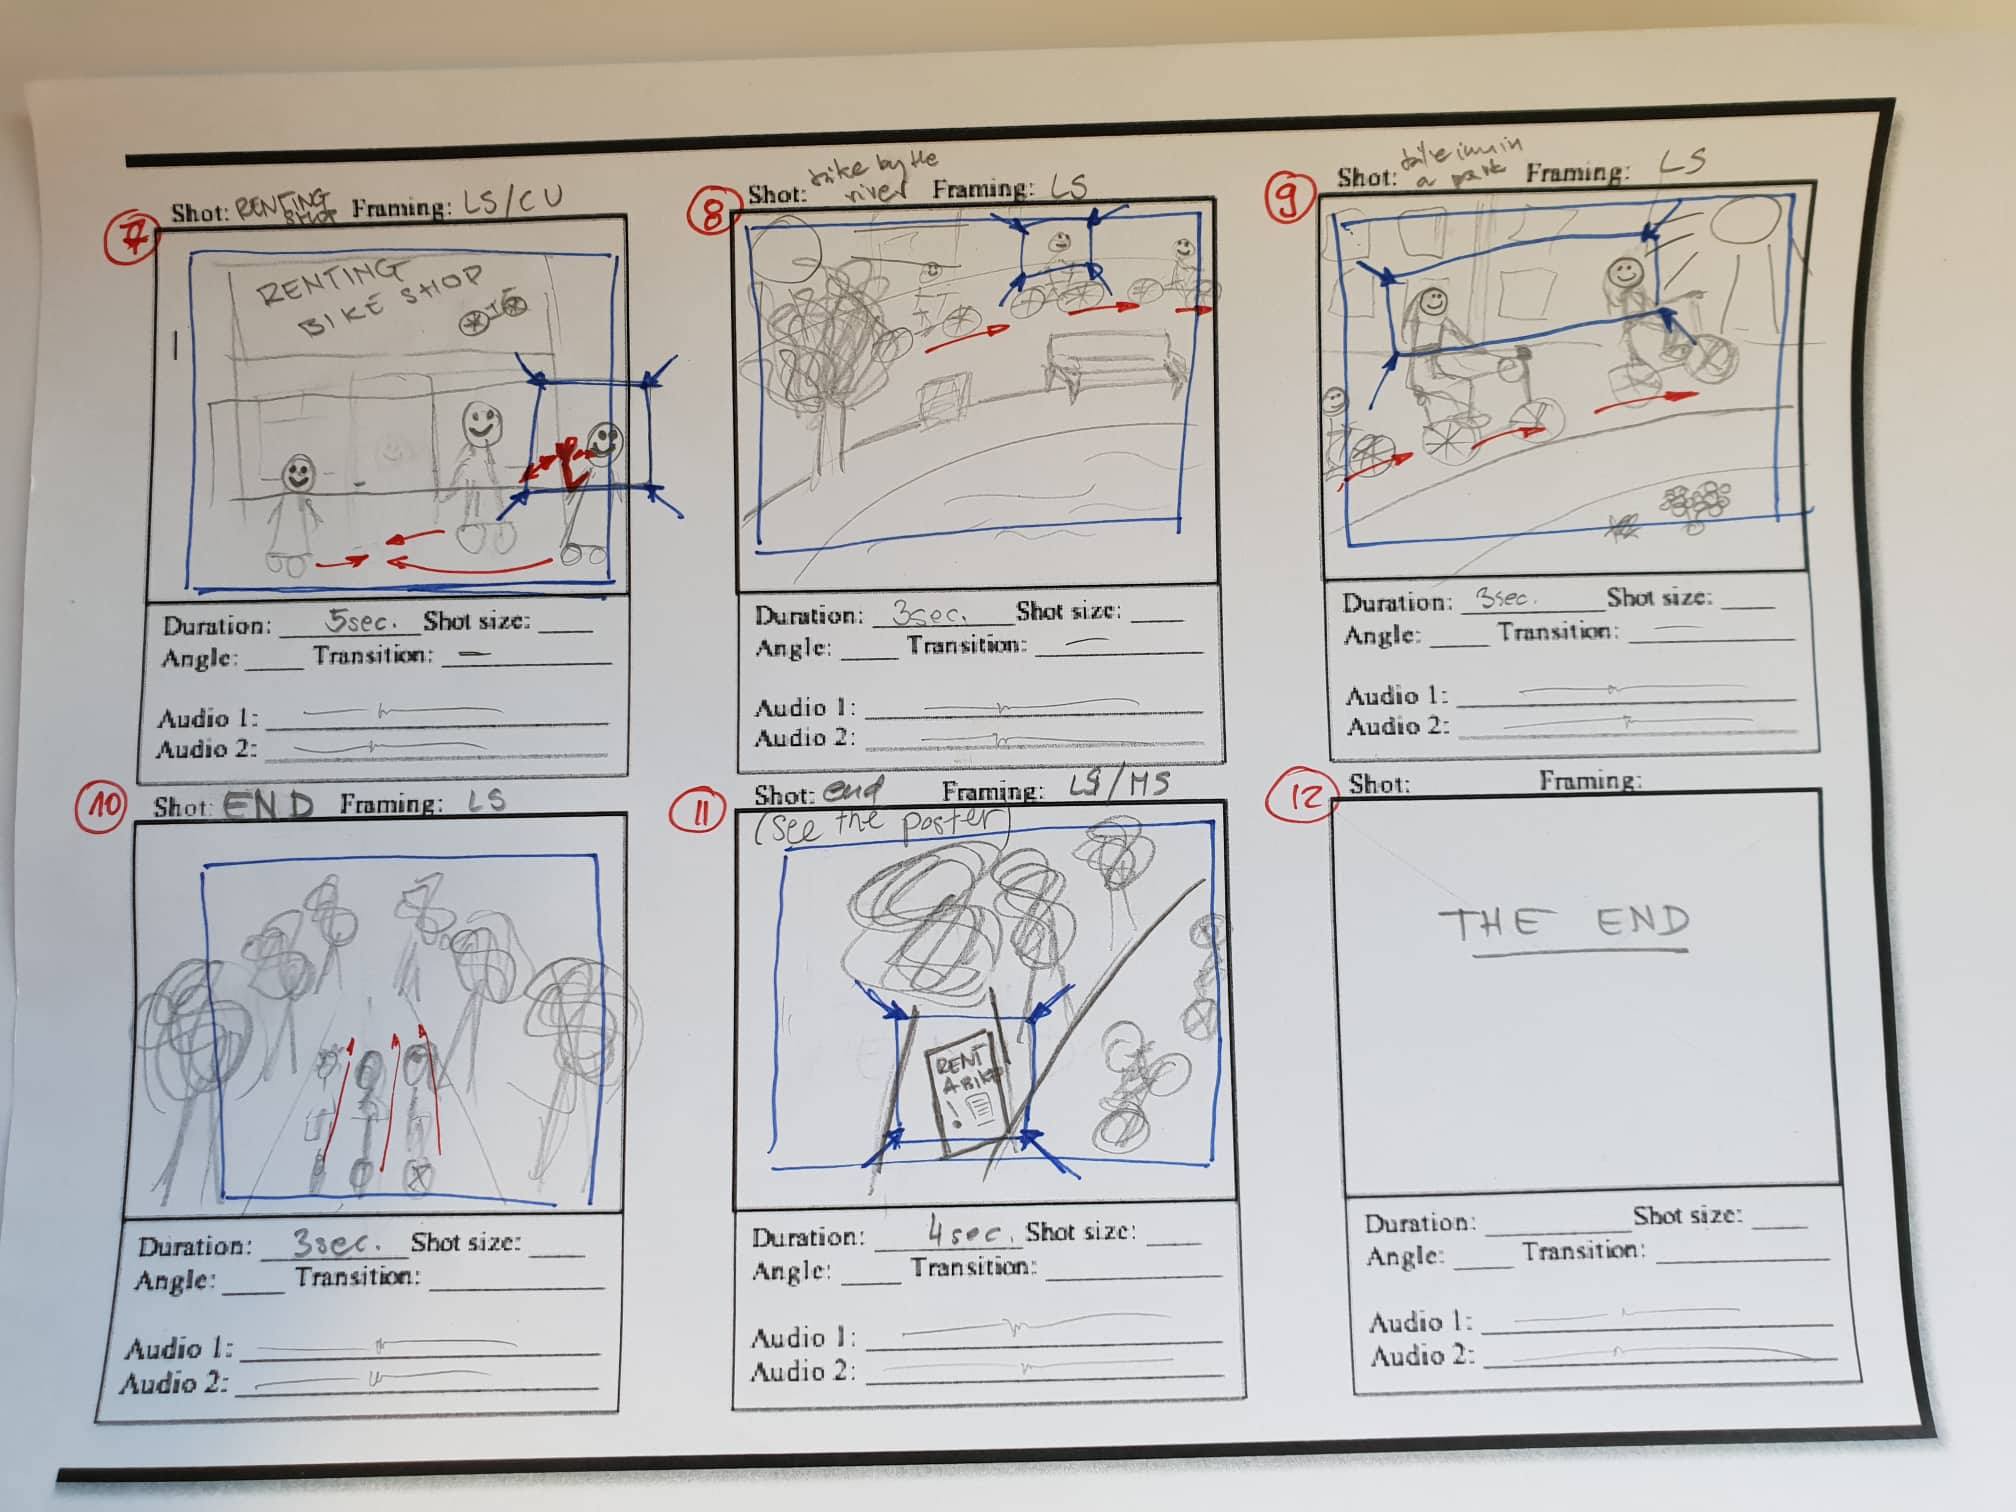 7
Shot: RENTING SHOP Framing: LS/CU
RENTING
BIKE SHOP
Duration: 5sec. Shot size:
Angle: Transition: –
Audio 1:
Audio 2:
8
Shot: bike by the river Framing: LS
Duration: 3sec. Shot size:
Angle: Transition: –
Audio 1:
Audio 2:
9
Shot: in a park Framing: LS
Duration: 3sec. Shot size:
Angle: Transition: –
Audio 1:
Audio 2:
10
Shot: END Framing: LS
Duration: 3sec. Shot size:
Angle: Transition:
Audio 1:
Audio 2:
11
Shot: end Framing: LS/MS
(see the poster)
RENT
A BIKE
!
Duration: 4sec. Shot size:
Angle: Transition:
Audio 1:
Audio 2:
12
Shot: Framing:
THE END
Duration: Shot size:
Angle: Transition:
Audio 1:
Audio 2: